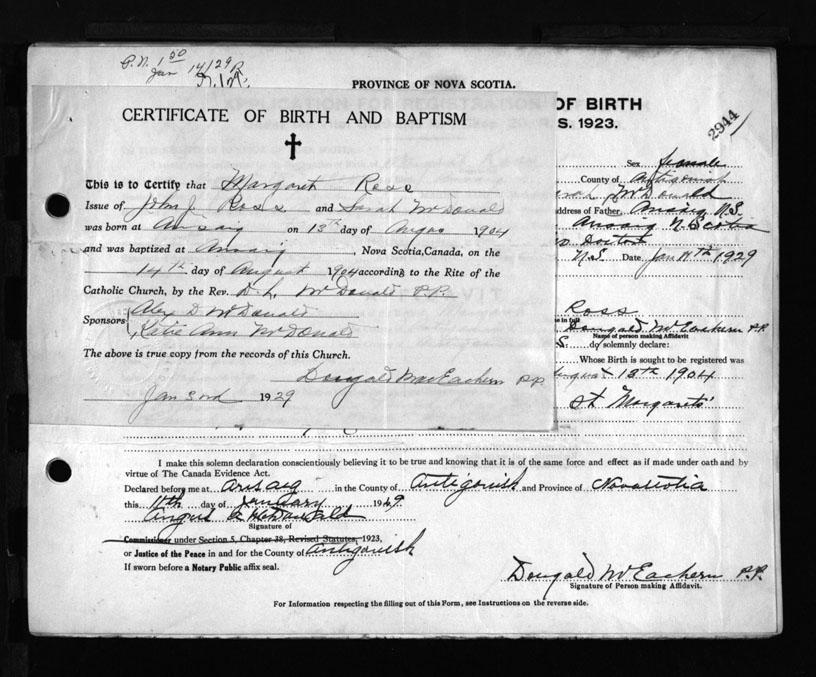 P.N. 1 50
Jan 14/29
PROVINCE OF NOVA SCOTIA.
CERTIFICATE OF BIRTH AND BAPTISM
OF BIRTH
S. 1923.
2944
This is to Certify that Margaret Ross
Issue of John J. Ross and Sarah McDonald
was born at Arisaig on 13th day of Augus 1904
and was baptized at Arisaig, Nova Scotia, Canada, on the
14th day of August 1904 according to the Rite of the
Catholic Church, by the Rev. D. L. McDonald P.P.
Sponsors Alex D McDonald
Katie Ann McDonald
The above is true copy from the records of this Church.
Dougald MacEachern P.P.
Jan 3rd 1929
Sex female
County of Antigonish
Sarah McDonald
Address of Father, Arisaig N.S.
Arisaig N. Scotia
Doctor
N.S. Date, Jan 11TH 1929
Ross
in full
Dougald McEachern P.P.
Name of person making Affidavit
S. do solemnly declare:
Whose Birth is sought to be registered was
August 13th 1904
St Margarets'
I make this solemn declaration conscientiously believing it to be true and knowing that it is of the same force and effect as if made under oath and by
virtue of The Canada Evidence Act.
Declared before me at Arisaig in the County of Antigonish and Province of Nova Scotia
this 11th day of January 1929
Angus McDonald
Signature of
Commissioner under Section 5, Chapter 38, Revised Statutes, 1923,
or Justice of the Peace in and for the County of Antigonish
If sworn before a Notary Public affix seal.
Dougald McEachern P.P.
Signature of Person making Affidavit.
For Information respecting the filling out of this Form, see Instructions on the reverse side.